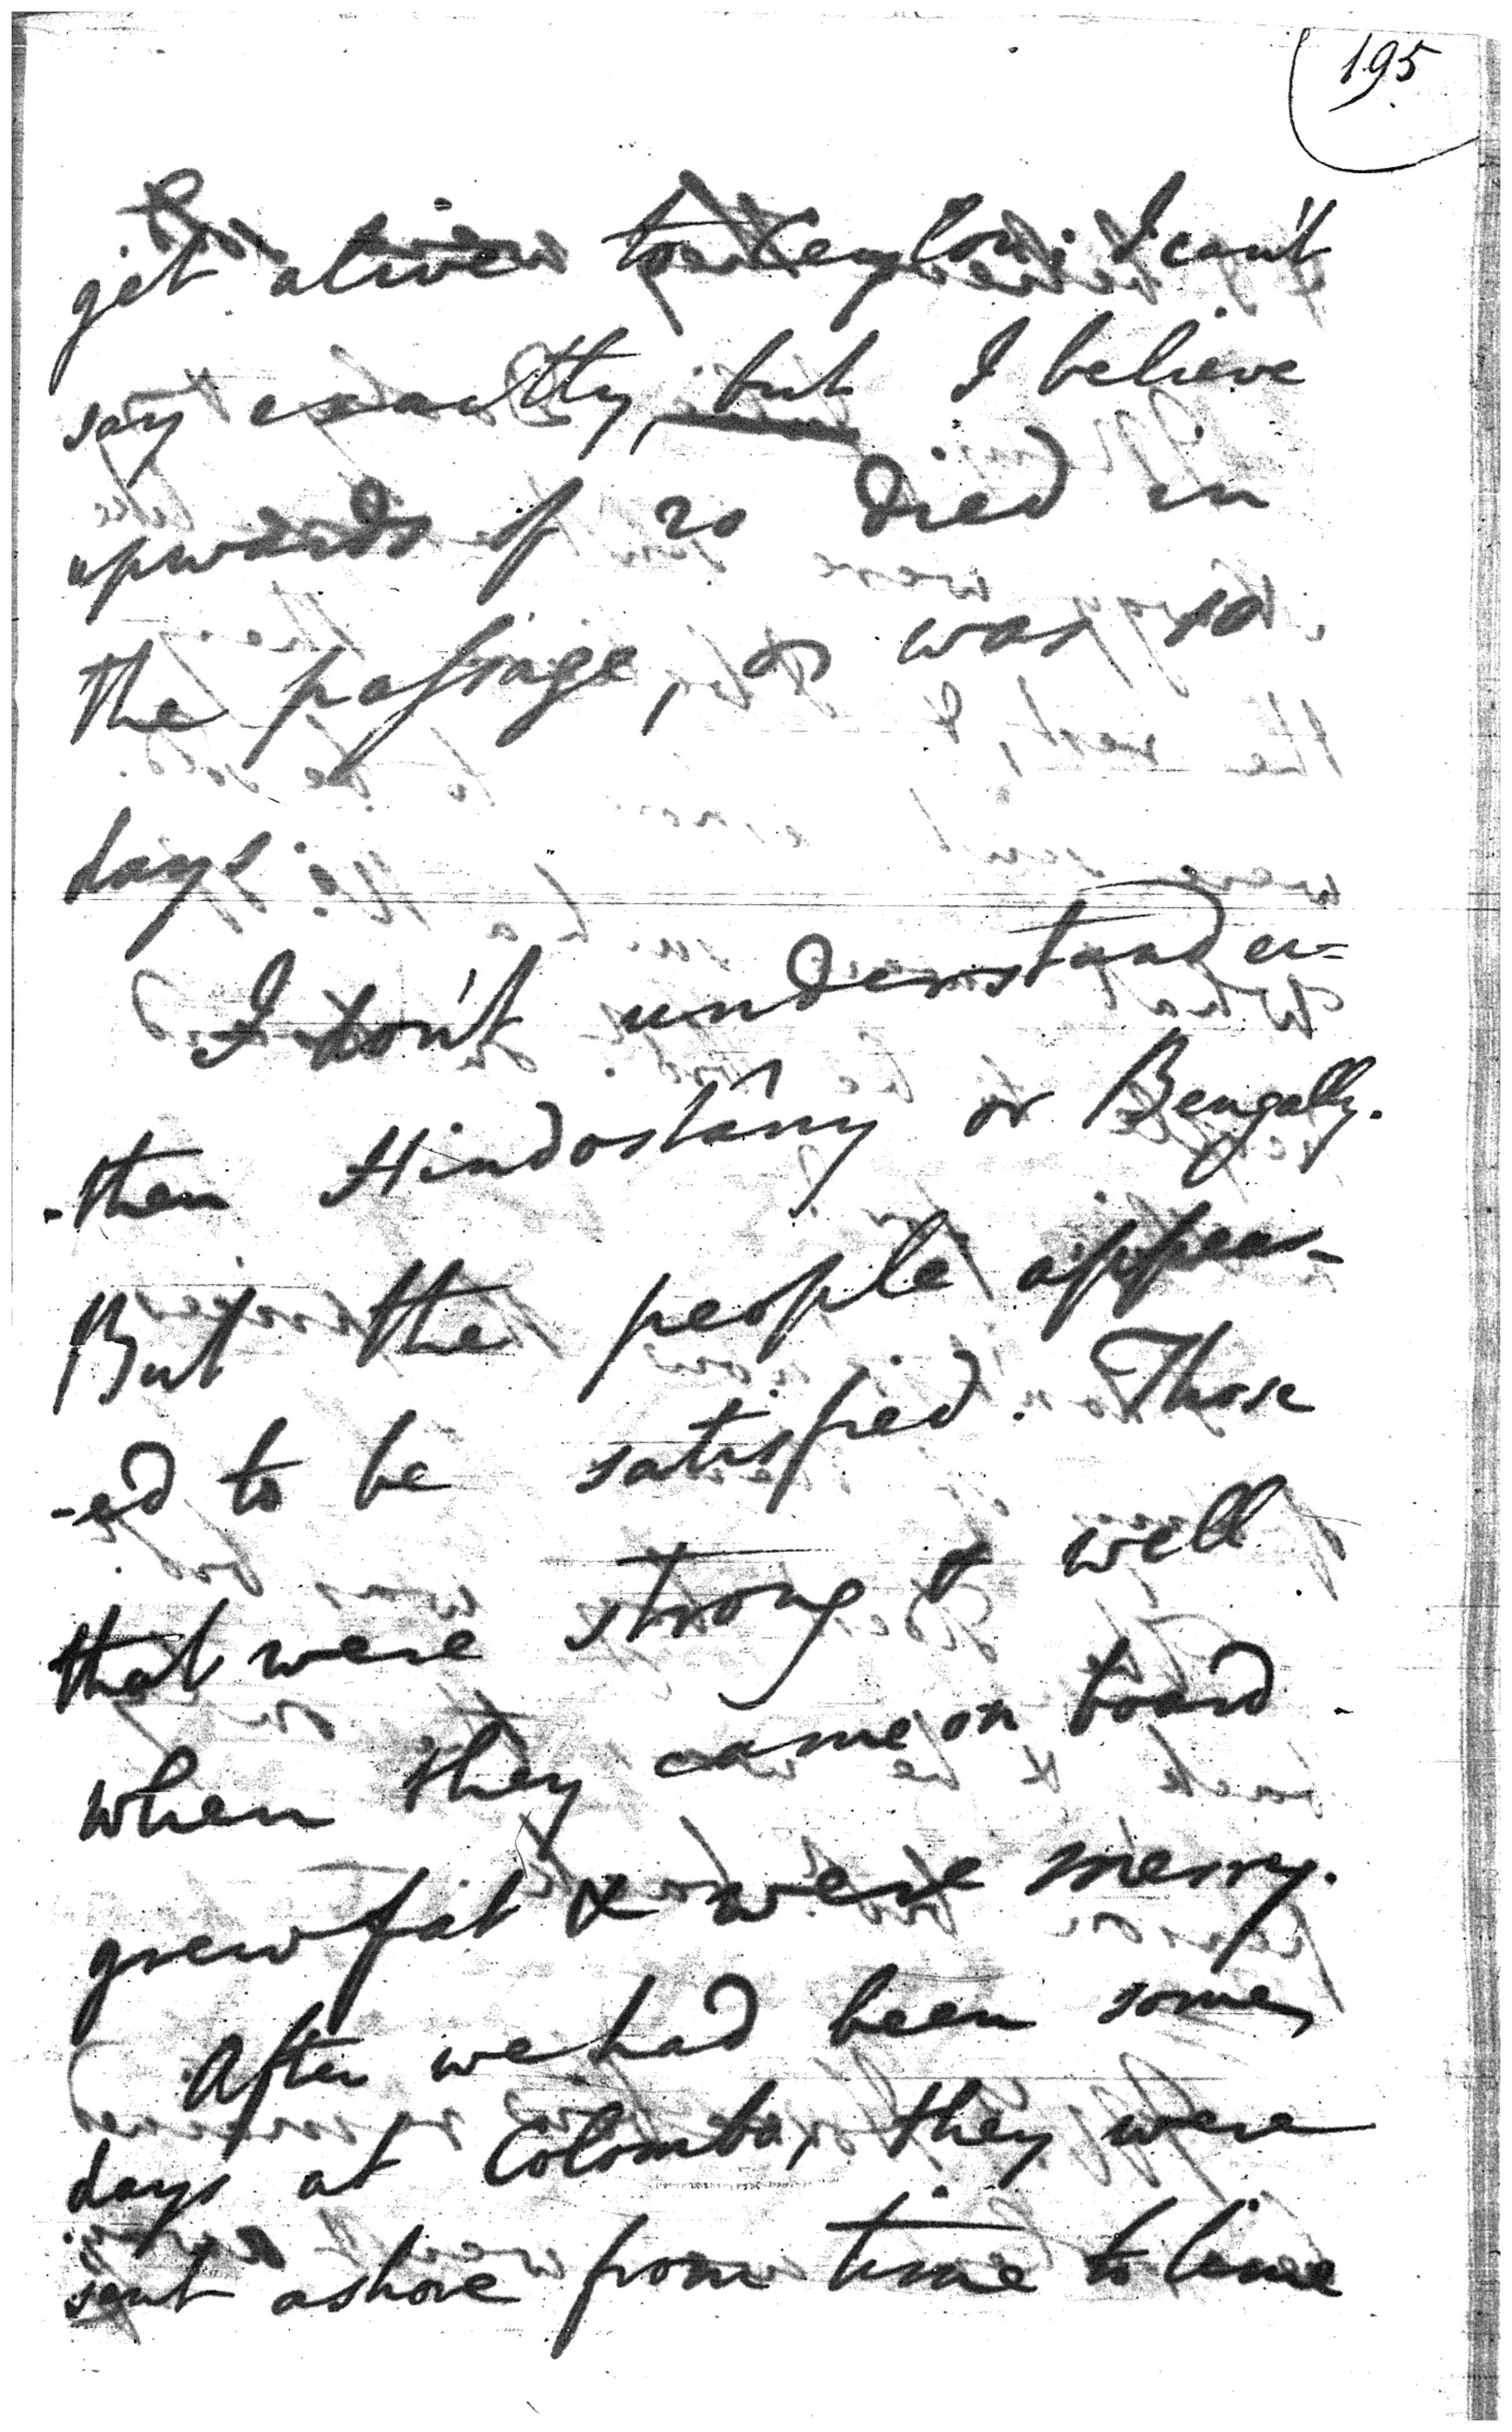 195
get alive to Ceylon; I can't
say exactly, but I believe
upwards of 20 died in
the passage, as was so
days.
I don't understand ei-
-ther Hindostany or Bengally.
But the people appear-
-ed to be satisfied. Those
that were strong & well
when they came on board
grew fat & were merry.
After we had been some
days at Colomba, they were
sent ashore from time to time